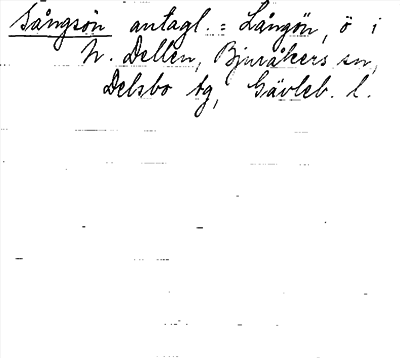 Sångsön antagl. = Långön, ö i
N. Dellen, Bjuråkers sn,
Delsbo tg, Gävleb. l.